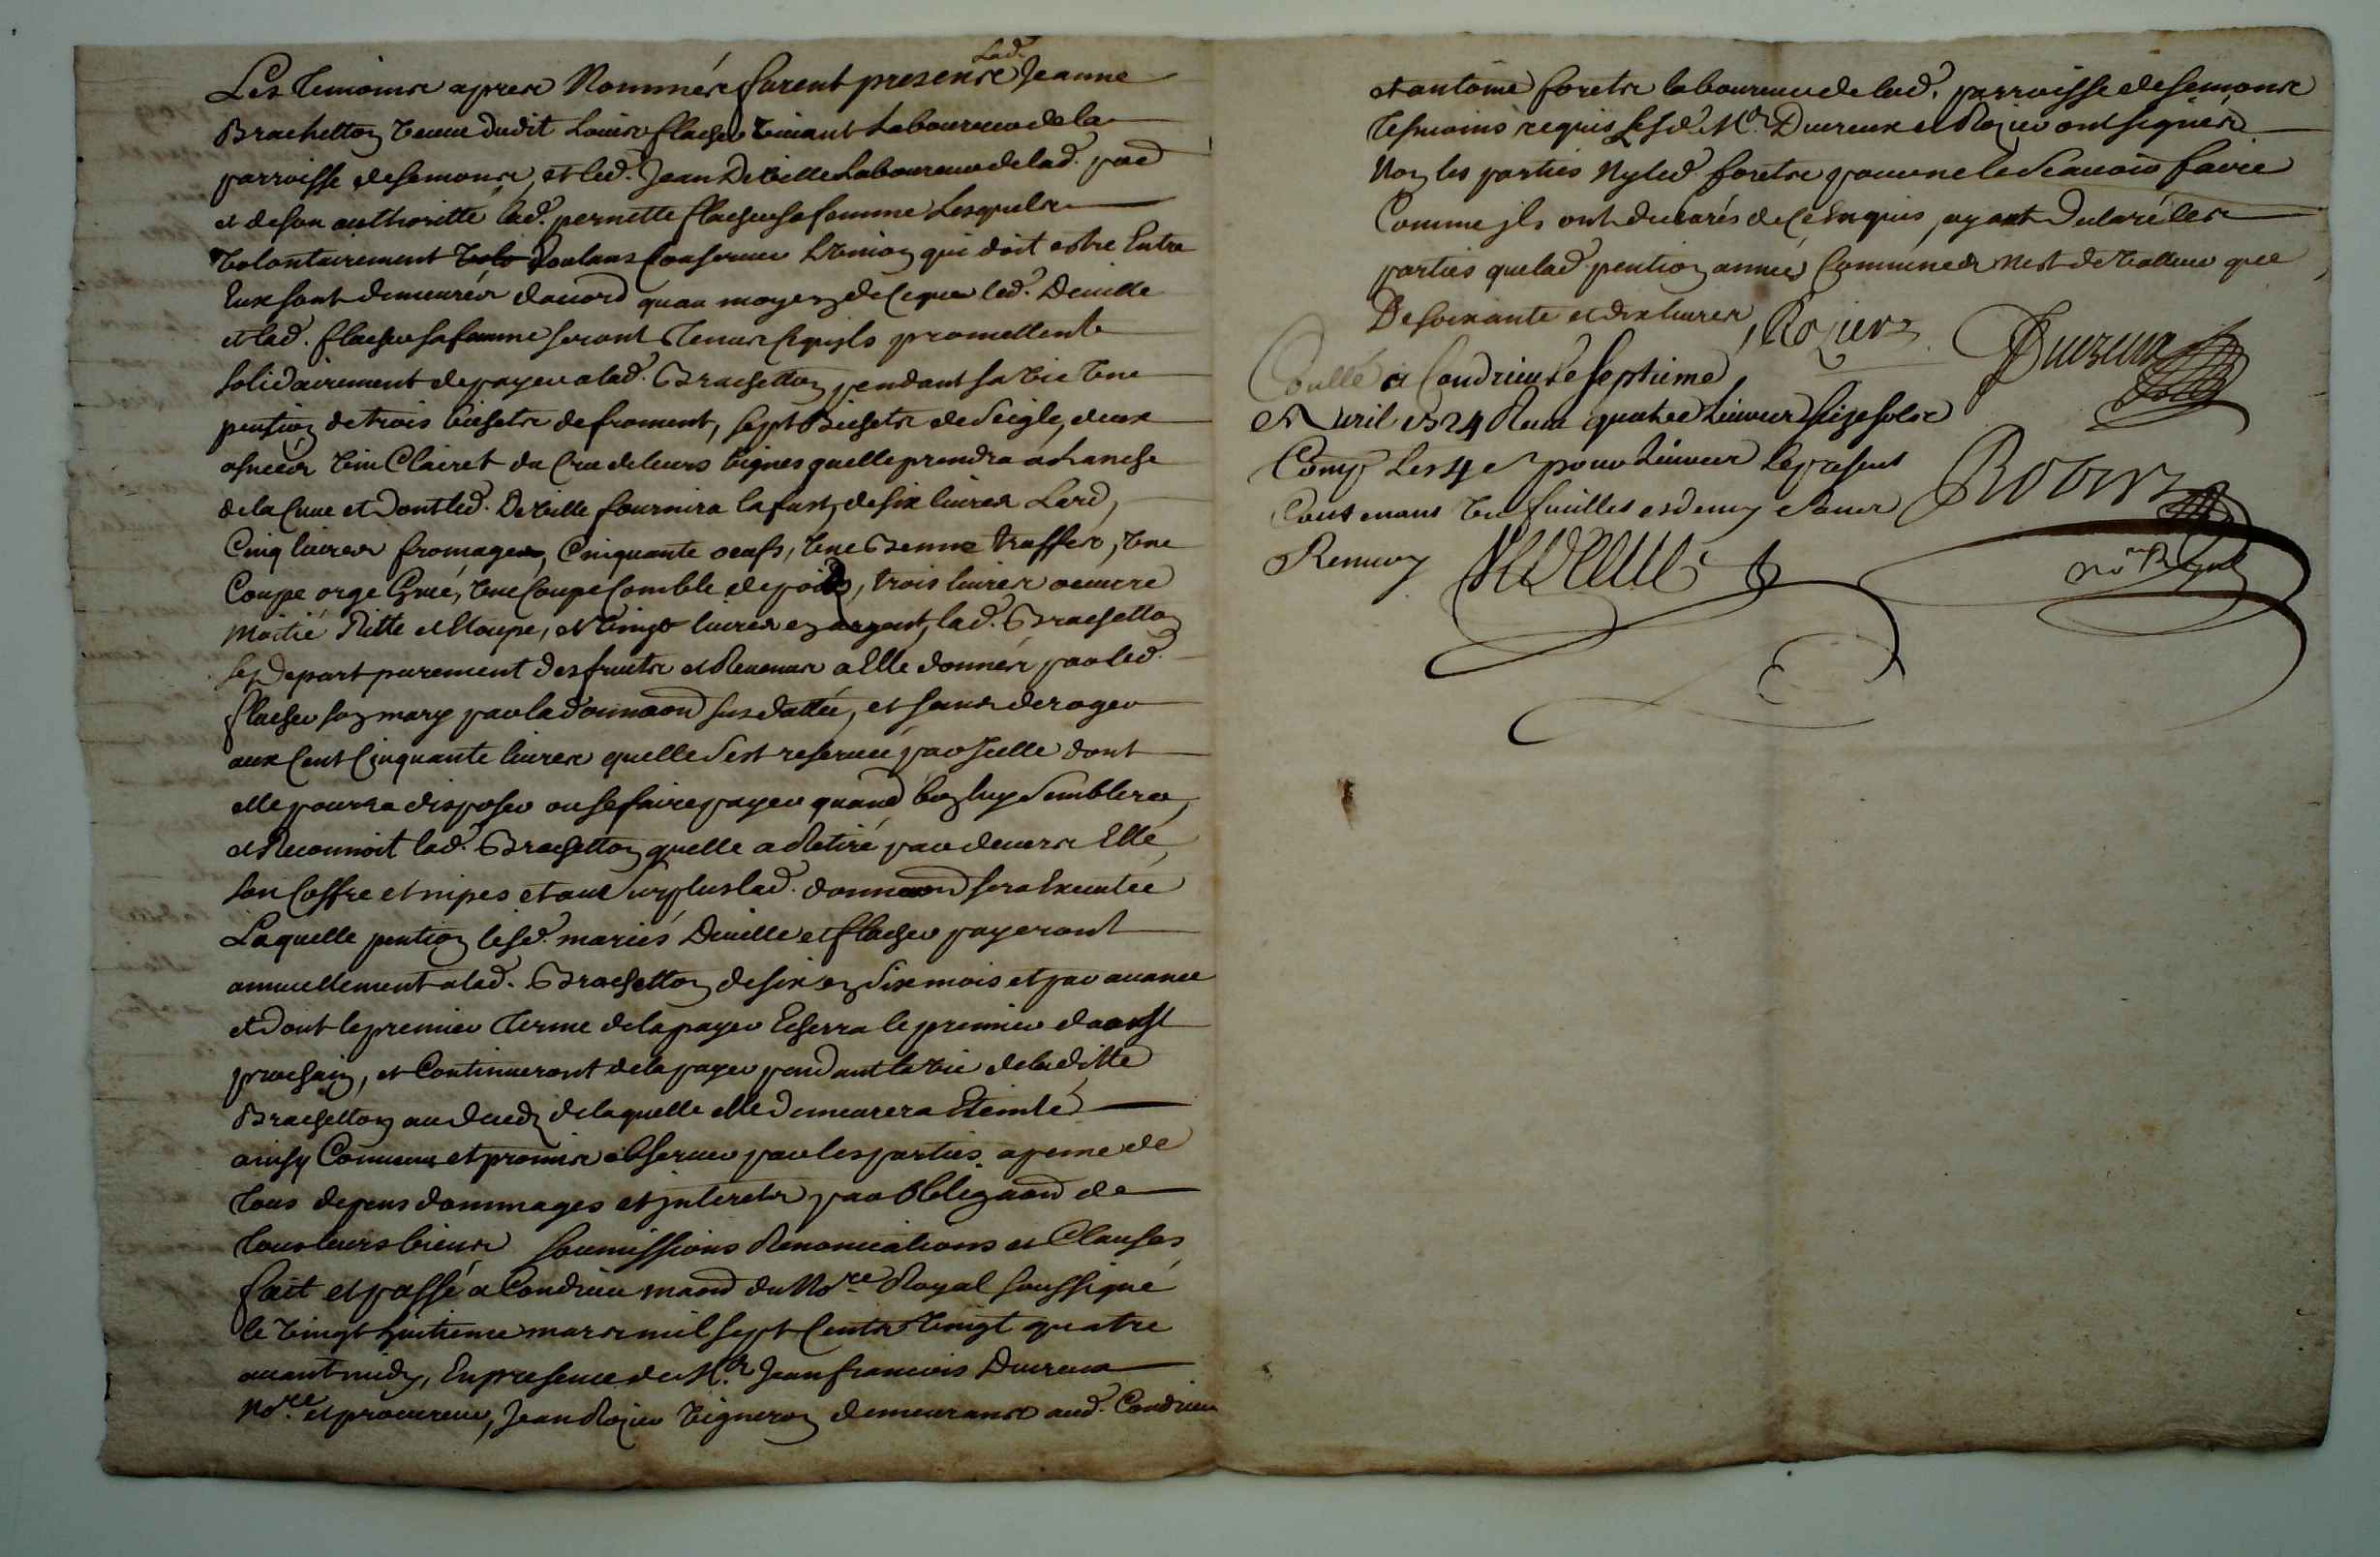 Lad.
Les Temoins apres Nommés furent presens Jeanne
Brachetton veuve dudit Louis flacher vivant Laboureur de la
parroisse de semons, et led. Jean Deville Laboureur de lad. par
et de son authoritté lad. pernette flacher sa femme Lesquels
volontairement voulans Conserver L'union qui doit estre Entre
Eux sont demeurés dacord quau moyen de ceque led. Deville
et lad. flacher sa femme seront Tenus Cequils promettent
solidairement de payer a lad. Brachetton pendant sa vie une
pention de trois bichets de froment, sept Bichets de seigle, deux
asnées vin Clairet du Cru de leurs vignes quelle prendra a Lanche
de la Cuve et dont led. Deville fournira la fust, de six livres Lard,
Cinq livres fromages, Cinquante oeufs, une Benne truffes, une
Coupe orge Grué, une Coupe Comble de pois, trois livres oeuvre
moitié Ritte et Etoupe, et vingt livres en argent, lad. Brachetton
se Depart purement des fruits et Revenus a Elle donnés par led.
flacher son mary par la donnaon sus dattée, et sans deroger
aux Cent Cinquante livres quelle s'est reservée par Icelle dont
elle pourra disposer ou se faire payer quand bon luy semblera,
et Reconnoit lad. Brachetton quelle a Retiré par devers Elle,
son Coffre et nipes et au surplus lad. donnaon sera Executée
Laquelle pention lesd. mariés Deville et flacher payeront
annuellement a lad. Brachetton de six en six mois et par avance
et dont le premier Terme de la payer Echerra le premier daoust
prochain, et Continueront de la payer pendant la vie de laditte
Brachetton au deceds de laquelle elle demeurera Eteinte
ainsy Convenu et promis observer par les parties a peine de
tous depens dommages et interets par obligaon de
tous leurs biens soumissions Renonciations et Clauses
fait et passé a Condrieu maison du No.re Royal soussigné
le vingt huitieme mars mil sept Cents vingt quatre
avant midy, En presence de M.e Jean francois Ducreux
No.re et procureur, Jean Rozier vigneron demeurans aud. Condrieu
et antoine forets laboureur de lad. parroisse de semons
Tesmoins requis Lesd. M.e Ducreux et Rozier ont signés
Non les parties Ny led. forets pour ne le scavoir faire
Comme ils ont declarés de ce Enquis, ayant declaré les
parties que lad. pention année Commune Nest de valleur que
De soixante et dix livres, Rozier Ducreux
Conllé a Condrieu le septieme
Avril 1724 Receu quatre Livres seize sols
Comp. Les 4 s. pour Livre le present
Contenant un feuilles et demy Sauve Robin
Renvoy no.re Royal